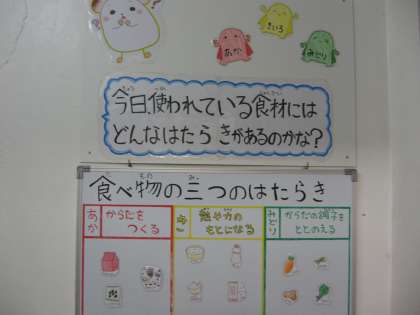 あか
きいろ
みどり
今日、使われている食材には
どんなはたらきがあるのかな?
食べ物の三つのはたらき
あか
からだを
つくる
きいろ
熱や力の
もとになる
みどり
からだの調子を
ととのえる